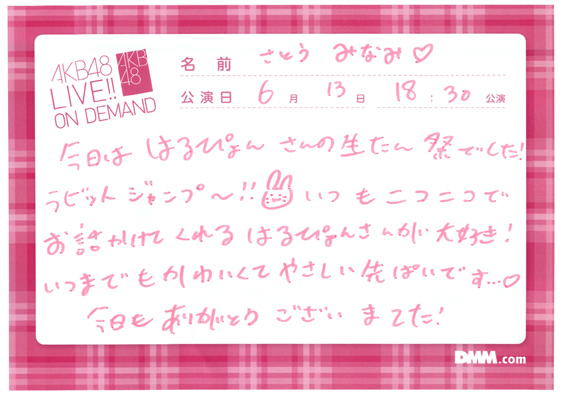 AKB48
LIVE!!
ON DEMAND
AKB
48
名 前 さとう みなみ♡
公演日 6 月 13 日 18 : 30 公演
今日は はるぴょん さんの生たん 祭でした!
ラビット ジャンプ〜!! いつ も ニコニコで
お話かけて くれる はるぴょんさんが 大好き!
いつまでも かわいくて やさしい 先ぱいです...♡
今日も ありがとう ございました!
DMM.com